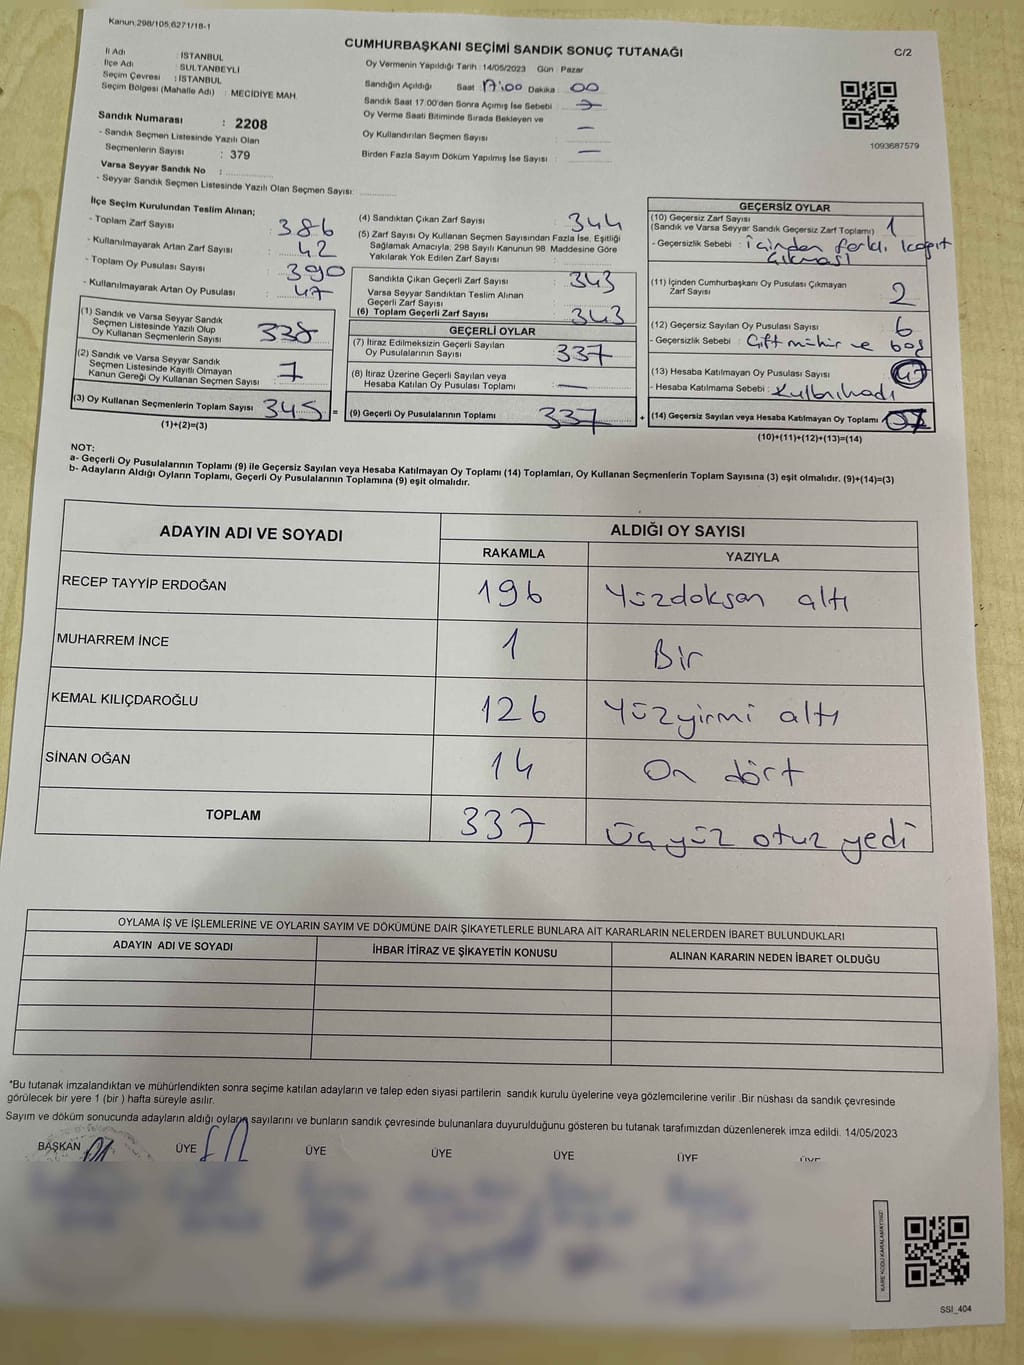 Kanun:298/105,6271/18-1
CUMHURBAŞKANI SEÇİMİ SANDIK SONUÇ TUTANAĞI
C/2
İl Adı : İSTANBUL
İlçe Adı : SULTANBEYLİ
Seçim Çevresi : İSTANBUL
Seçim Bölgesi (Mahalle Adı) : MECİDİYE MAH.
Sandık Numarası : 2208
- Sandık Seçmen Listesinde Yazılı Olan
Seçmenlerin Sayısı : 379
Varsa Seyyar Sandık No :
- Seyyar Sandık Seçmen Listesinde Yazılı Olan Seçmen Sayısı:
Oy Vermenin Yapıldığı Tarih : 14/05/2023 Gün : Pazar
Sandığın Açıldığı Saat : 17:00 Dakika : 00
Sandık Saat 17:00'den Sonra Açımış İse Sebebi : —
Oy Verme Saati Bitiminde Sırada Bekleyen ve
Oy Kullandırılan Seçmen Sayısı : —
Birden Fazla Sayım Döküm Yapılmış İse Sayısı : —
1093687579
İlçe Seçim Kurulundan Teslim Alınan;
- Toplam Zarf Sayısı : 386
- Kullanılmayarak Artan Zarf Sayısı : 42
- Toplam Oy Pusulası Sayısı : 390
- Kullanılmayarak Artan Oy Pusulası : 47
(1) Sandık ve Varsa Seyyar Sandık
Seçmen Listesinde Yazılı Olup
Oy Kullanan Seçmenlerin Sayısı : 338
(2) Sandık ve Varsa Seyyar Sandık
Seçmen Listesinde Kayıtlı Olmayan
Kanun Gereği Oy Kullanan Seçmen Sayısı : 7
(3) Oy Kullanan Seçmenlerin Toplam Sayısı : 345 =
(1)+(2)=(3)
(4) Sandıktan Çıkan Zarf Sayısı : 344
(5) Zarf Sayısı Oy Kullanan Seçmen Sayısından Fazla İse, Eşitliği
Sağlamak Amacıyla; 298 Sayılı Kanunun 98. Maddesine Göre
Yakılarak Yok Edilen Zarf Sayısı :
Sandıkta Çıkan Geçerli Zarf Sayısı : 343
Varsa Seyyar Sandıktan Teslim Alınan
Geçerli Zarf Sayısı :
(6) Toplam Geçerli Zarf Sayısı : 343
GEÇERLİ OYLAR
(7) İtiraz Edilmeksizin Geçerli Sayılan
Oy Pusulalarının Sayısı : 337
(8) İtiraz Üzerine Geçerli Sayılan veya
Hesaba Katılan Oy Pusulası Toplamı : —
(9) Geçerli Oy Pusulalarının Toplamı : 337 +
GEÇERSİZ OYLAR
(10) Geçersiz Zarf Sayısı
(Sandık ve Varsa Seyyar Sandık Geçersiz Zarf Toplamı) : 1
- Geçersizlik Sebebi : İçinden farklı kağıt
çıkması
(11) İçinden Cumhurbaşkanı Oy Pusulası Çıkmayan
Zarf Sayısı : 2
(12) Geçersiz Sayılan Oy Pusulası Sayısı : 6
- Geçersizlik Sebebi : Çift mühür ve boş
(13) Hesaba Katılmayan Oy Pusulası Sayısı :
- Hesaba Katılmama Sebebi :
(14) Geçersiz Sayılan veya Hesaba Katılmayan Oy Toplamı :
(10)+(11)+(12)+(13)=(14)
NOT:
a- Geçerli Oy Pusulalarının Toplamı (9) ile Geçersiz Sayılan veya Hesaba Katılmayan Oy Toplamı (14) Toplamları, Oy Kullanan Seçmenlerin Toplam Sayısına (3) eşit olmalıdır. (9)+(14)=(3)
b- Adayların Aldığı Oyların Toplamı, Geçerli Oy Pusulalarının Toplamına (9) eşit olmalıdır.
ADAYIN ADI VE SOYADI
ALDIĞI OY SAYISI
RAKAMLA YAZIYLA
RECEP TAYYİP ERDOĞAN 196 Yüzdoksan altı
MUHARREM İNCE 1 Bir
KEMAL KILIÇDAROĞLU 126 Yüzyirmi altı
SİNAN OĞAN 14 On dört
TOPLAM 337 Üçyüz otuz yedi
OYLAMA İŞ VE İŞLEMLERİNE VE OYLARIN SAYIM VE DÖKÜMÜNE DAİR ŞİKAYETLERLE BUNLARA AİT KARARLARIN NELERDEN İBARET BULUNDUKLARI
ADAYIN ADI VE SOYADI İHBAR İTİRAZ VE ŞİKAYETİN KONUSU ALINAN KARARIN NEDEN İBARET OLDUĞU
*Bu tutanak imzalandıktan ve mühürlendikten sonra seçime katılan adayların ve talep eden siyasi partilerin sandık kurulu üyelerine veya gözlemcilerine verilir .Bir nüshası da sandık çevresinde
görülecek bir yere 1 (bir ) hafta süreyle asılır.
Sayım ve döküm sonucunda adayların aldığı oyların sayılarını ve bunların sandık çevresinde bulunanlara duyurulduğunu gösteren bu tutanak tarafımızdan düzenlenerek imza edildi. 14/05/2023
BAŞKAN ÜYE ÜYE ÜYE ÜYE ÜYE ÜYE
KARE KODU KARALAMAYINIZ!
SSI_404